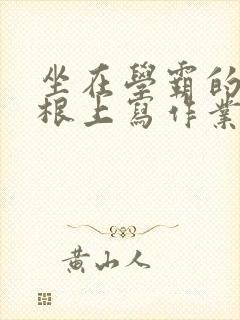 坐在學霸的
根上寫作業
黃山人